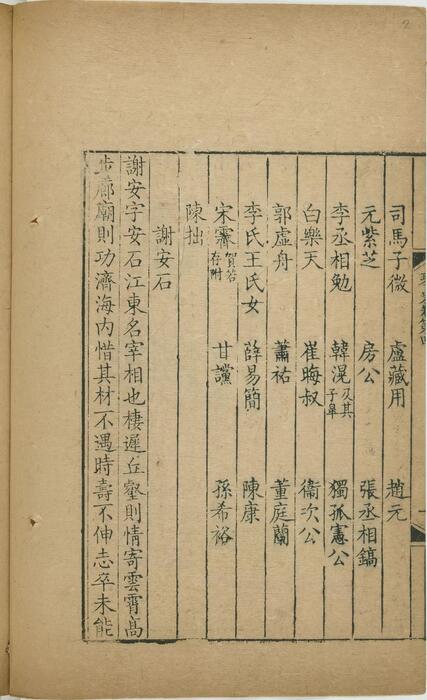 2
琴史卷第四
司馬子微 盧藏用 趙元
元紫芝 房公 張丞相鎬
李丞相勉 韓滉及其子皐 獨孤憲公
白樂天 崔晦叔 衞次公
郭虛舟 蕭祐 董庭蘭
李氏王氏女 薛易簡 陳康
宋霽賀若存附 甘讜 孫希裕
陳拙
謝安石
謝安字安石江東名宰相也棲遲丘壑則情寄雲霄高
步廊廟則功濟海内惜其材不遇時壽不伸志卒未能